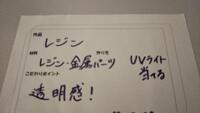 作品
レジン
材料
レジン・金属パーツ
作り方
UVライト
当てる
こだわりポイント
透明感!